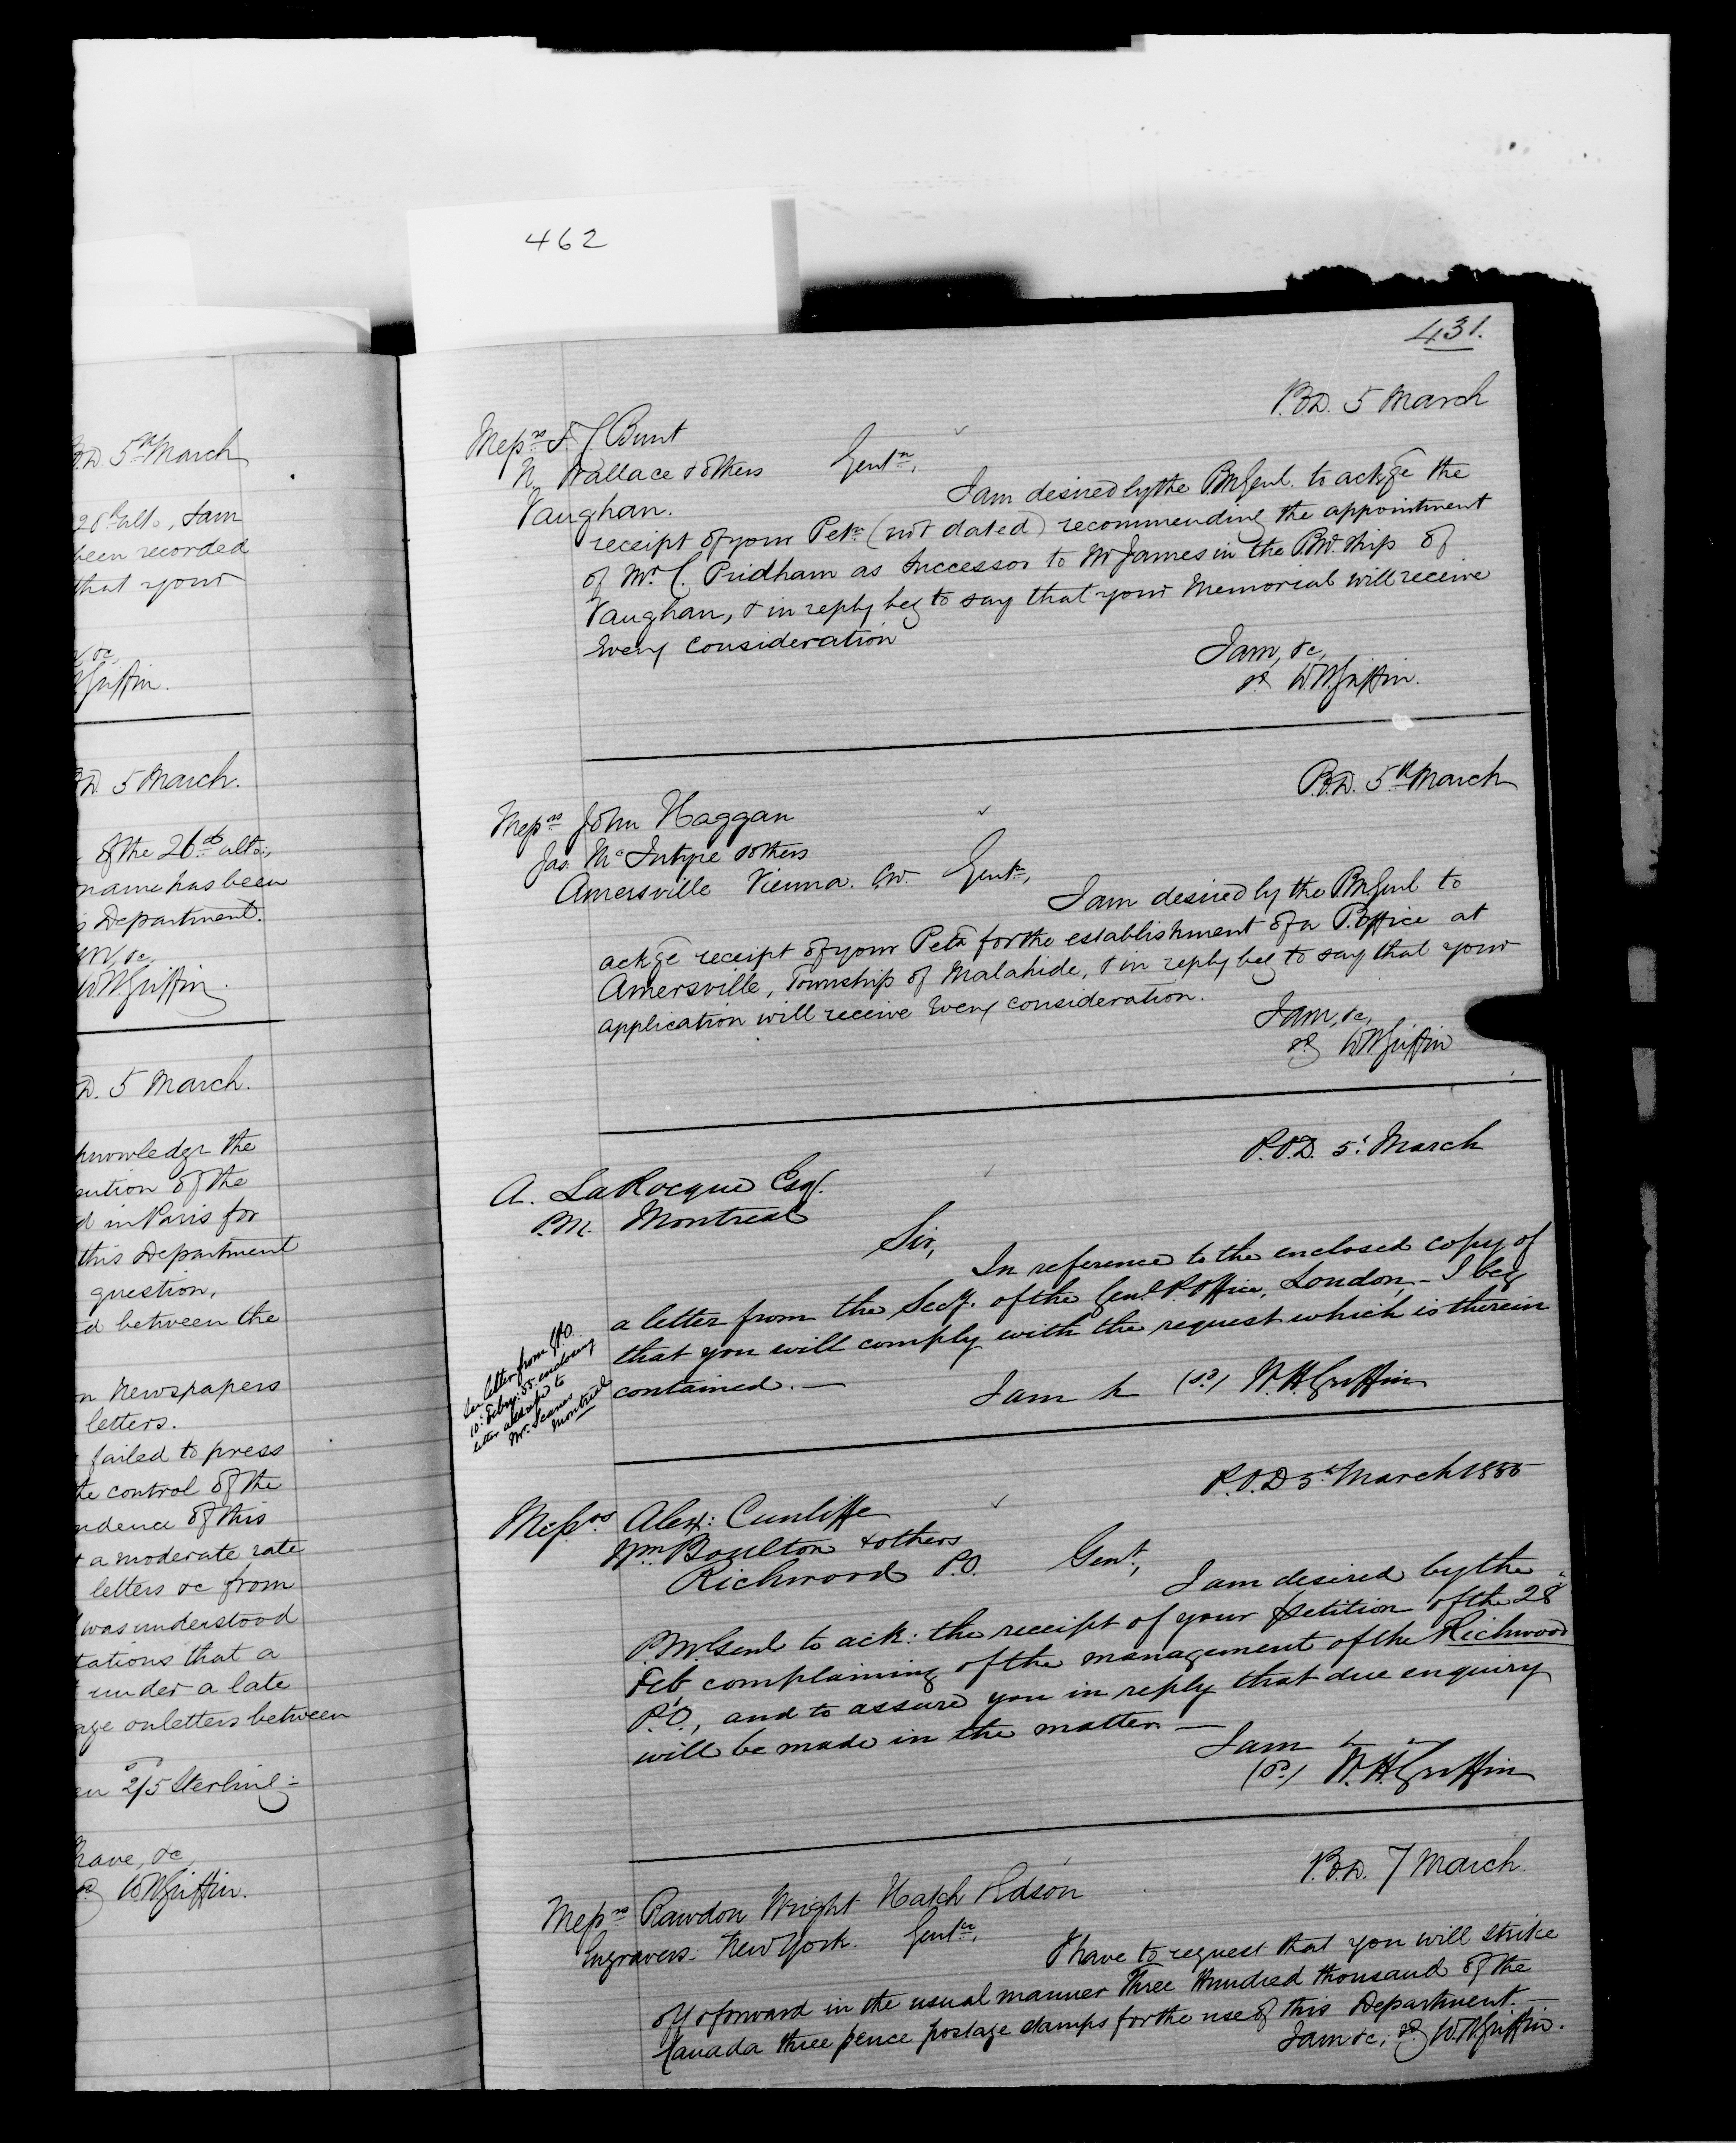 462
P.D. 5th March
28th ulto, I am
been recorded
that your
&c,
Griffin.
D. 5 March.
of the 26th ulto,
name has been
Department.
&c,
W.H. Griffin.
D. 5 March.
knowledge the
of the
in Paris for
this Department
question,
between the
Newspapers
letters.
failed to press
the control of the
of this
a moderate rate
letters &c from
was understood
that a
under a late
on letters between
2/5 Sterling
have, &c,
sd W.H. Griffin.
431.
P.O.D. 5 March
Messrs F. J. Bunt
N. Wallace & others Gentn,
Vaughan.
I am desired by the P.M. Genl. to ackge the
receipt of your Petn (not dated) recommending the appointment
of Mr C. Pridham as Successor to Mr James in the P.M. ship of
Vaughan, & in reply beg to say that your Memorial will receive
every consideration
I am, &c,
sd W.H. Griffin.
P.O.D. 5th March
Messrs John Haggan
Jas. McIntyre & others
Amersville Vienna. C.W. Gentn,
I am desired by the P.M. Genl to
ackge receipt of your Petn for the establishment of a P. Office at
Amersville, Township of Malahide, & in reply beg to say that your
application will receive every consideration.
I am, &c,
sd W.H. Griffin
P.O.D. 5th March
A. LaRocque Esq.
P.M. Montreal
Sir,
In reference to the enclosed copy of
a letter from the Secy. of the Genl. P. Office, London, - I beg
that you will comply with the request which is therein
contained. —
I am &c (sd) W.H. Griffin
See letter from GPO.
10: Feby: 55. enclosing
letter addressed to
Mr.
Montreal
P.O.D 5th March 1855
Messrs. Alexr: Cunliffe
Wm Boulton & others
Richwood P.O. Gent.,
I am desired by the
P.M. Genl to ack: the receipt of your petition of the 28
Feb complaining of the management of the Richwood
P.O., and to assure you in reply that due enquiry
will be made in the matter —
I am &c
(sd) W.H. Griffin
P.O.D. 7 March
Messrs Rawdon Wright Hatch Edson
Engravers. New York. Gentn,
I have to request that you will strike
off & forward in the usual manner Three Hundred thousand of the
Canada three pence postage stamps for the use of this Department.
I am &c, sd W.H. Griffin.